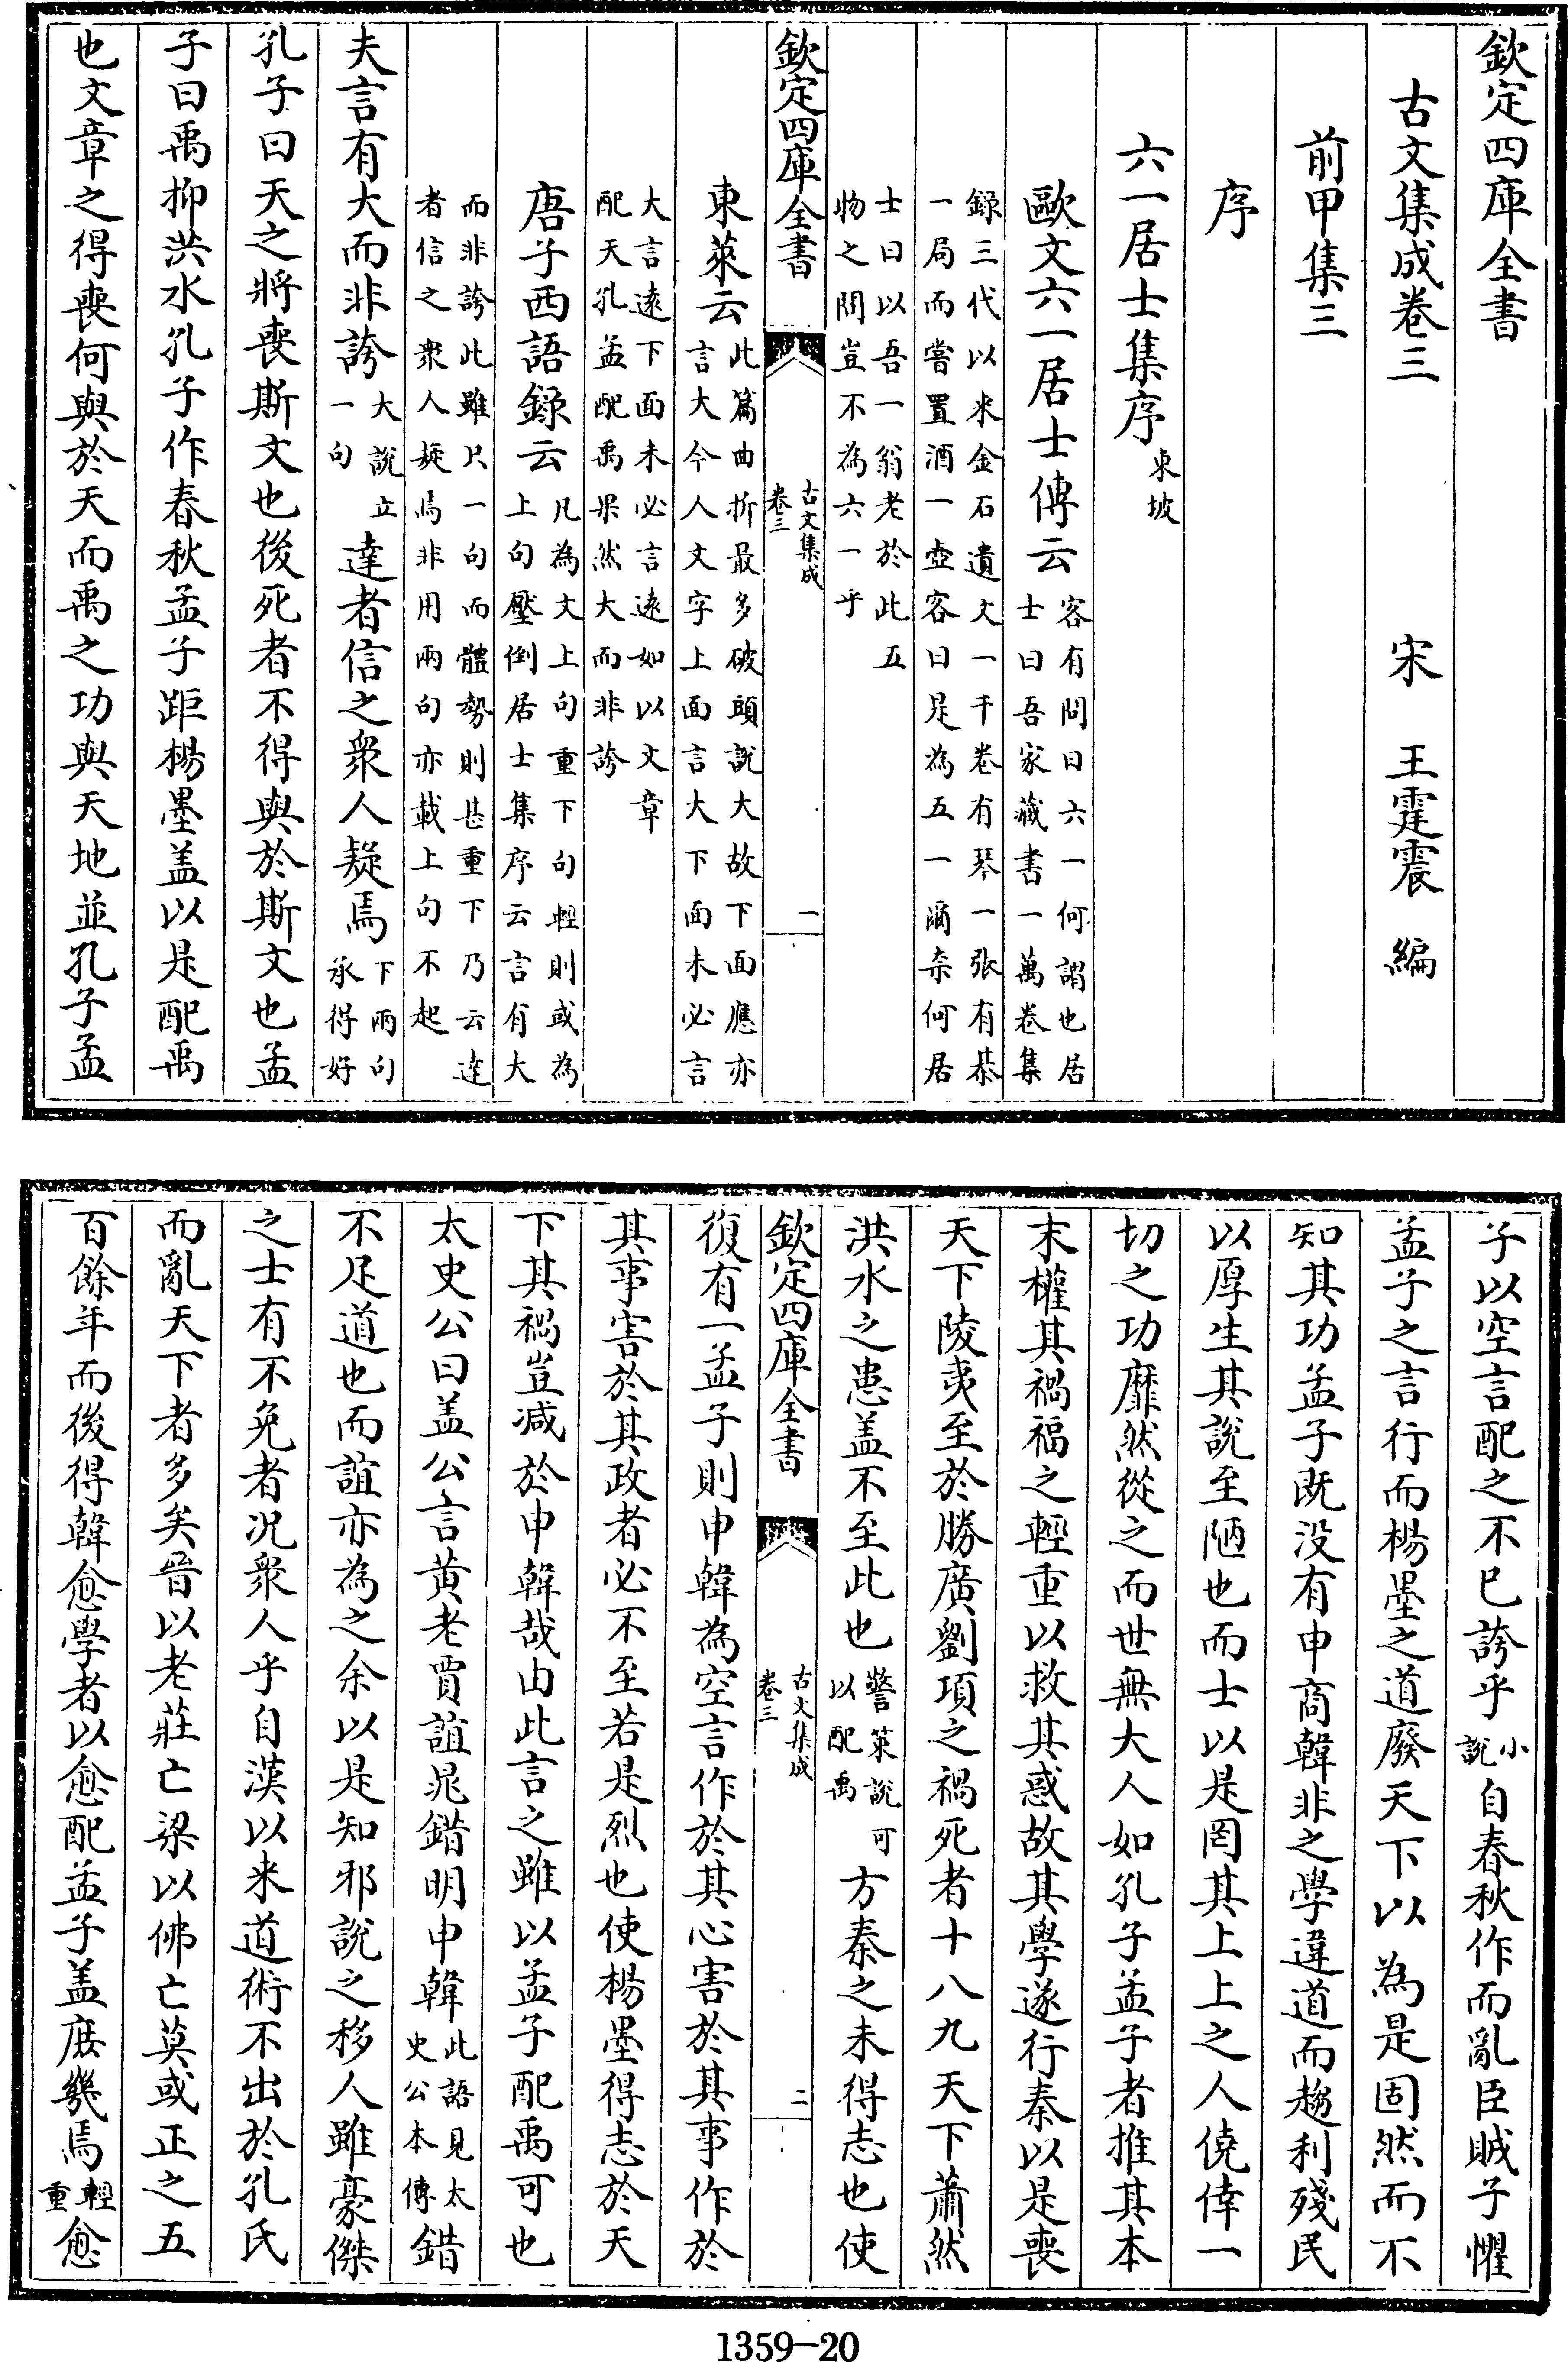 欽定四庫全書
古文集成卷三　宋　王霆震　編
前甲集三
序
六一居士集序東坡
歐文六一居士傳云客有問曰六一何謂也居
士曰吾家藏書一萬卷集
錄三代以來金石遺文一千卷有琴一張有棊
一局而嘗置酒一壺客曰是為五一爾奈何居
士曰以吾一翁老於此五
物之間豈不為六一乎
欽定四庫全書
古文集成
卷三
一
東萊云此篇曲折最多破頭說大故下面應亦
言大今人文字上面言大下面未必言
大言遠下面未必言遠如以文章
配天孔孟配禹果然大而非誇
唐子西語錄云凡為文上句重下句輕則或為
上句壓倒居士集序云言有大
而非誇此雖只一句而體勢則甚重下乃云達
者信之衆人疑焉非用兩句亦載上句不起
夫言有大而非誇大說立
一句
達者信之衆人疑焉下兩句
承得好
孔子曰天之將喪斯文也後死者不得與於斯文也孟
子曰禹抑洪水孔子作春秋孟子距楊墨盖以是配禹
也文章之得喪何與於天而禹之功與天地並孔子孟
子以空言配之不已誇乎小
說
自春秋作而亂臣賊子懼
孟子之言行而楊墨之道廢天下以為是固然而不
知其功孟子既没有申商韓非之學違道而趨利殘民
以厚生其說至陋也而士以是罔其上上之人僥倖一
切之功靡然從之而世無大人如孔子孟子者推其本
末權其禍福之輕重以救其惑故其學遂行秦以是喪
天下陵夷至於勝廣劉項之禍死者十八九天下蕭然
洪水之患盖不至此也警策說可
以配禹
方秦之未得志也使
欽定四庫全書
古文集成
卷三
二
復有一孟子則申韓為空言作於其心害於其事作於
其事害於其政者必不至若是烈也使楊墨得志於天
下其禍豈减於申韓哉由此言之雖以孟子配禹可也
太史公曰盖公言黄老賈誼晁錯明申韓此語見太
史公本傳
錯
不足道也而誼亦為之余以是知邪說之移人雖豪傑
之士有不免者况衆人乎自漢以来道術不出於孔氏
而亂天下者多矣晉以老莊亡梁以佛亡莫或正之五
百餘年而後得韓愈學者以愈配孟子盖庶幾焉輕
重
愈
1359-20